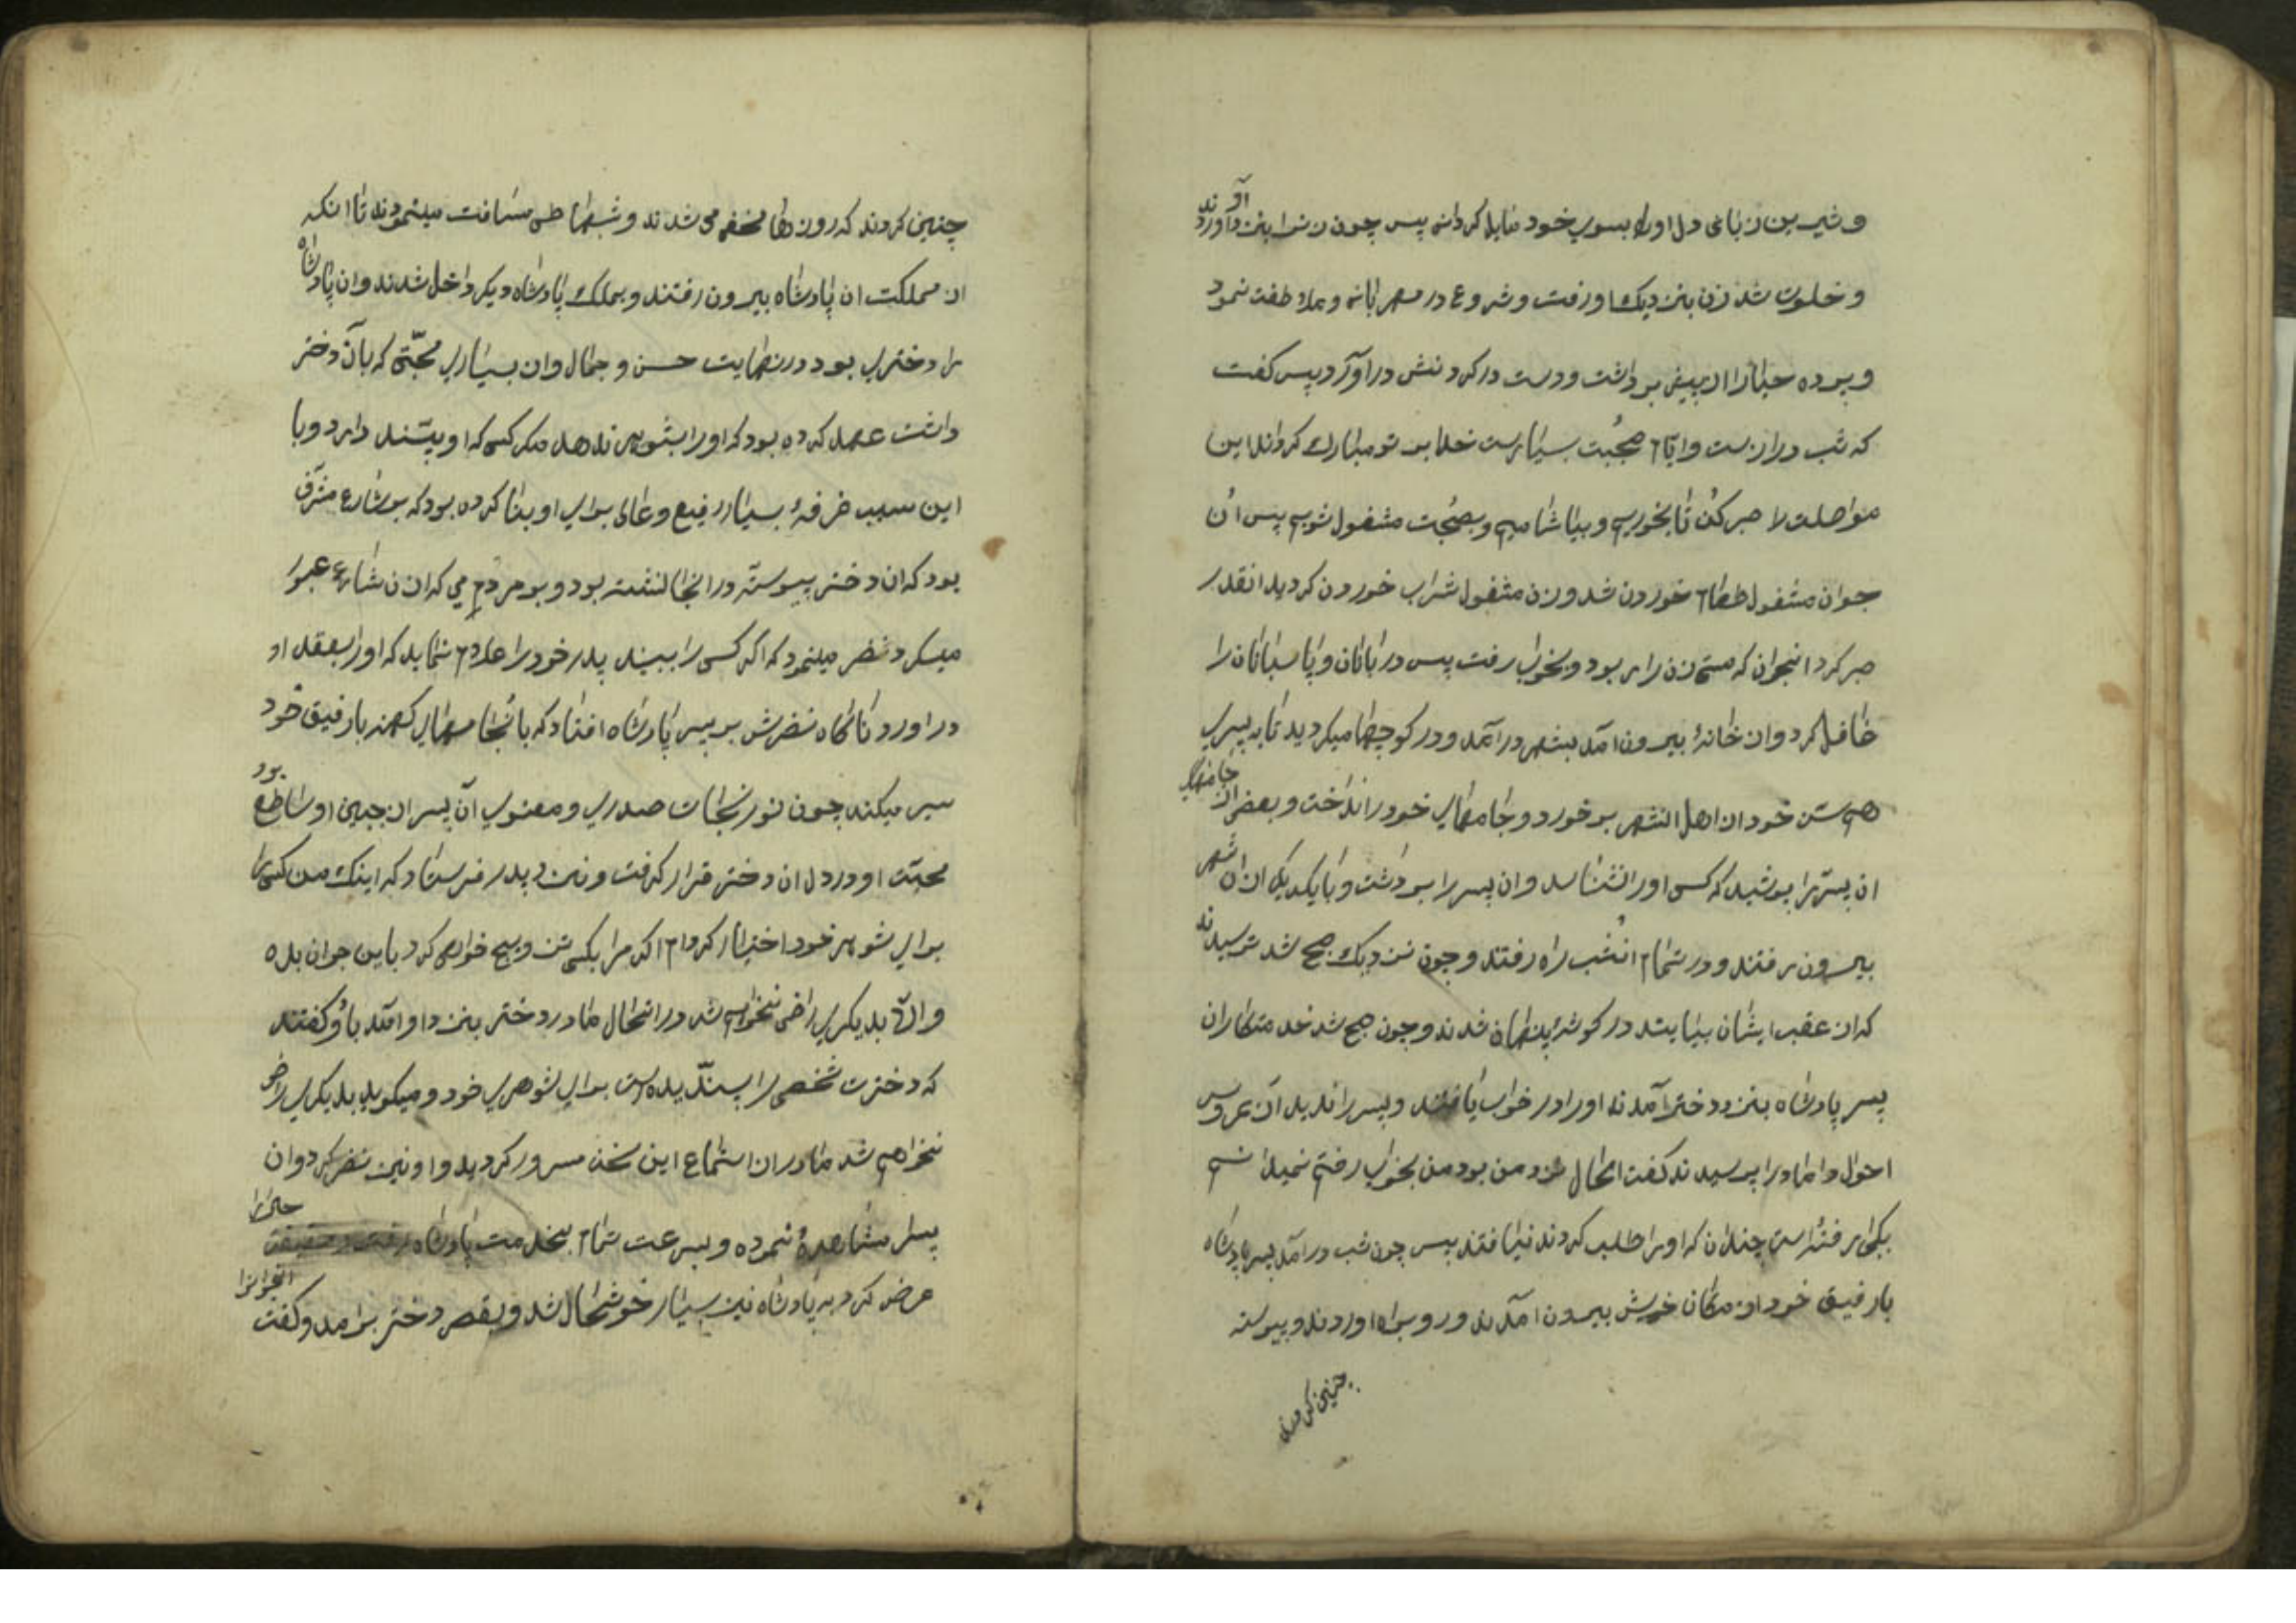 و شیرین زبانی دل او را بسوی خود مایل کردان پس چون زنرا بنزد او آوردند
و خلوت شد زن بنزدیک او رفت و شروع در مهربانی و ملاطفت نمود
و پرده حیا را از پیش برداشت و دست در کردنش درآورد پس کفت
که شب درازست و ایام صحبت بسیارست خدا بر تو مبارک کرداند این
مواصلت را صبر کن تا بخوریم و بیاشامیم و بصحبت مشغول شویم پس آن
جوان مشغول طعام خوردن شد و زن مشغول شراب خوردن کردید انقدر
صبر کرد انجوان که مستی زن را ربود و بخواب رفت پس دربانان و پاسبانان را
غافل کرد و از خانه بیرون امد بشهر درآمد و در کوچها میکردید تا به پسری
هم سن خود از اهل انشهر برخورد و جامهای خود را انداخت و بعضی از جامهای
ان پسر را پوشید که کسی او را نشناسد و ان پسر را برداشت و با یکدیکر از ان شهر
بیرون رفتند و در تمام انشب راه رفتند و چون نزدیک صبح شد ترسیدند
که از عقب ایشان بیایند در کوشه پنهان شدند و چون صبح شد خدمتکاران
پسر پادشاه بنزد دختر آمدند او را در خواب یافتند و پسر را ندیدند از عروس
احوال داماد را پرسیدند کفت الحال نزد من بود من بخواب رفتم نمیدانم
بکجا رفته است چندان که او را طلب کردند نیافتند پس چون شب درآمد پسر پادشاه
با رفیق خود از مکان خویش بیرون آمدند و رو براه اوردند و پیوسته
چنین کردند
چنین کردند که روزها مخفی می شدند و شبها طی مسافت مینمودند تا انکه
از مملکت ان پادشاه بیرون رفتند و بملک پادشاه دیکر داخل شدند و ان پادشاه
را دختری بود در نهایت حسن و جمال و از بسیاری محبّتی که بآن دختر
داشت عهد کرده بود که او را بشوهر ندهد مکر کسی که او پسند دارد و با
این سبب غرفهٔ بسیار رفیع و عالی برای او بنا کرده بود که بر شارع مشرف
بود که ان دختر پیوسته در انجا نشسته بود و بر مردم می که از ان شارع عبور
میکرد نضر مینمود که اکر کسی را ببیند پدر خود را اعلام نماید که او را بعقد او
دراورد ناکاه نضرش بر پسر پادشاه افتاد که با جامهای کهنه با رفیق خود
سیر میکند چون نور نجابت صوری و معنوی آن پسر از جبین او ساطع بود
محبت او در دل ان دختر قرار کرفت و نزد پدر فرستاد که اینک من کسی را
برای شوهر خود اختیار کرده ام اکر مرا بکسی تزویج خواهی کرد باین جوان بده
و الّا بدیکری راضی نخواهم شد در انحال مادر دختر بنزد او آمد باو کفتند
که دخترت شخصی را پسندیده است برای شوهری خود و میکوید بدیکری راضی
نخواهم شد مادر از استماع این سخن مسرور کردید و او نیز نضر کرد و ان
پسر را مشاهده نموده و بسرعت تمام بخدمت پادشاه رفت و حقیقت حال را
عرض کرد به پادشاه نیز بسیار خوشحال شد و بقصر دختر برامد و کفت انجوانرا